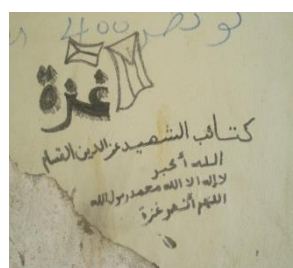 400
غزة
كتائب الشهيد عز الدين القسام
الله أكبر
لا إله الا الله محمد رسول الله
اللهم أنصر غزة